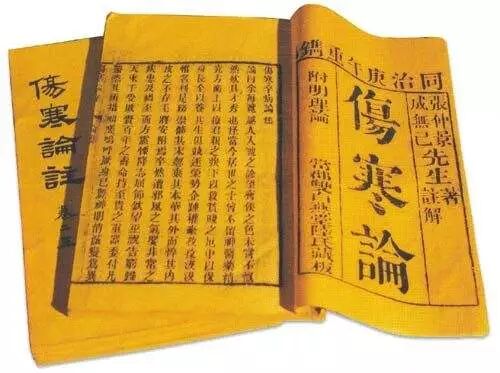 同治庚午重鐫
張仲景著
成無已先生註解
傷寒論
附明理論 常郡雙白燕堂陸氏藏板
傷寒卒病論集
論曰余每覽越人入虢之診望齊侯之色未嘗不慨
然歎其才秀也怪當今居世之士曾不留神醫藥精
究方術上以療君親之疾下以救貧賤之厄中以保
身長全以養其生但競逐榮勢企踵權豪孜孜汲汲
惟名利是務崇飾其末忽棄其本華其外而悴其內
皮之不存毛將安附焉卒然遭邪風之氣嬰非常之
疾患及禍至而方震慄降志屈節欽望巫祝告窮歸
天束手受敗賚百年之壽命持至貴之重器委付凡
醫恣其所措咄嗟嗚呼厥身已斃神明消滅變為異
傷寒論註